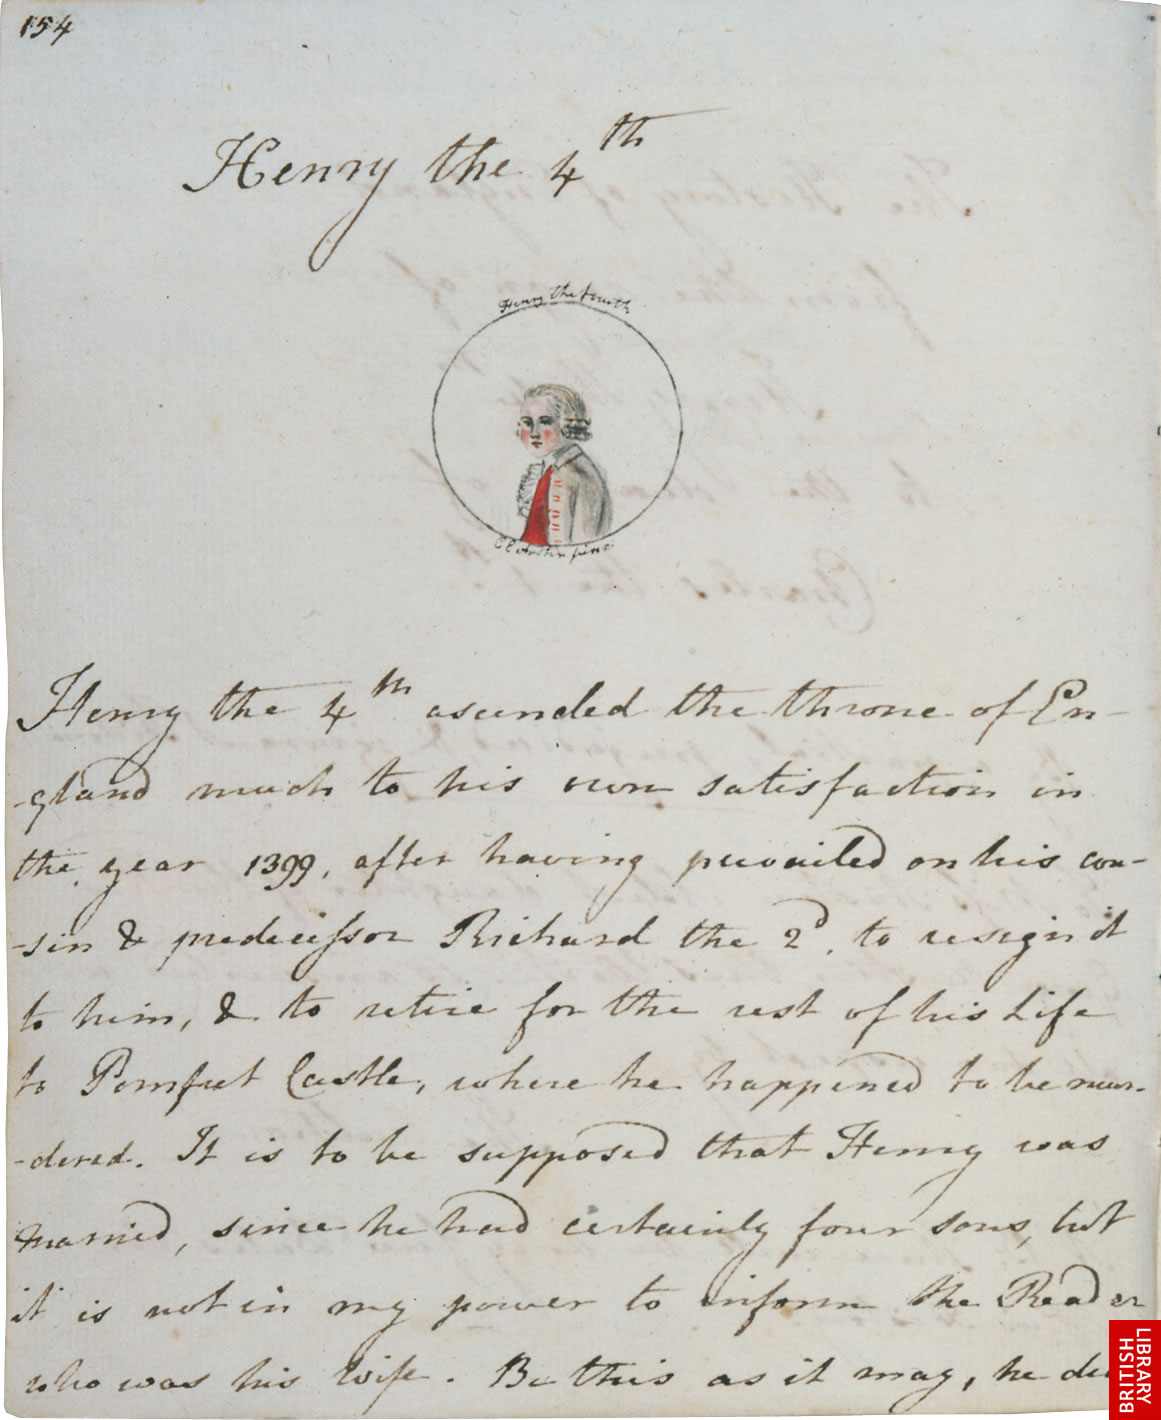 154
Henry the 4th
Henry the fourth
C E Austin pinx.
Henry the 4th ascended the throne of En-
-gland much to his own satisfaction in
the year 1399, after having prevailed on his cou-
-sin & predecessor Richard the 2d, to resign it
to him, & to retire for the rest of his Life
to Pomfret Castle, where he happened to be mur-
-dered. It is to be supposed that Henry was
married, since he had certainly four sons, but
it is not in my power to inform the Reader
who was his Wife. Be this as it may, he
BRITISH
LIBRARY